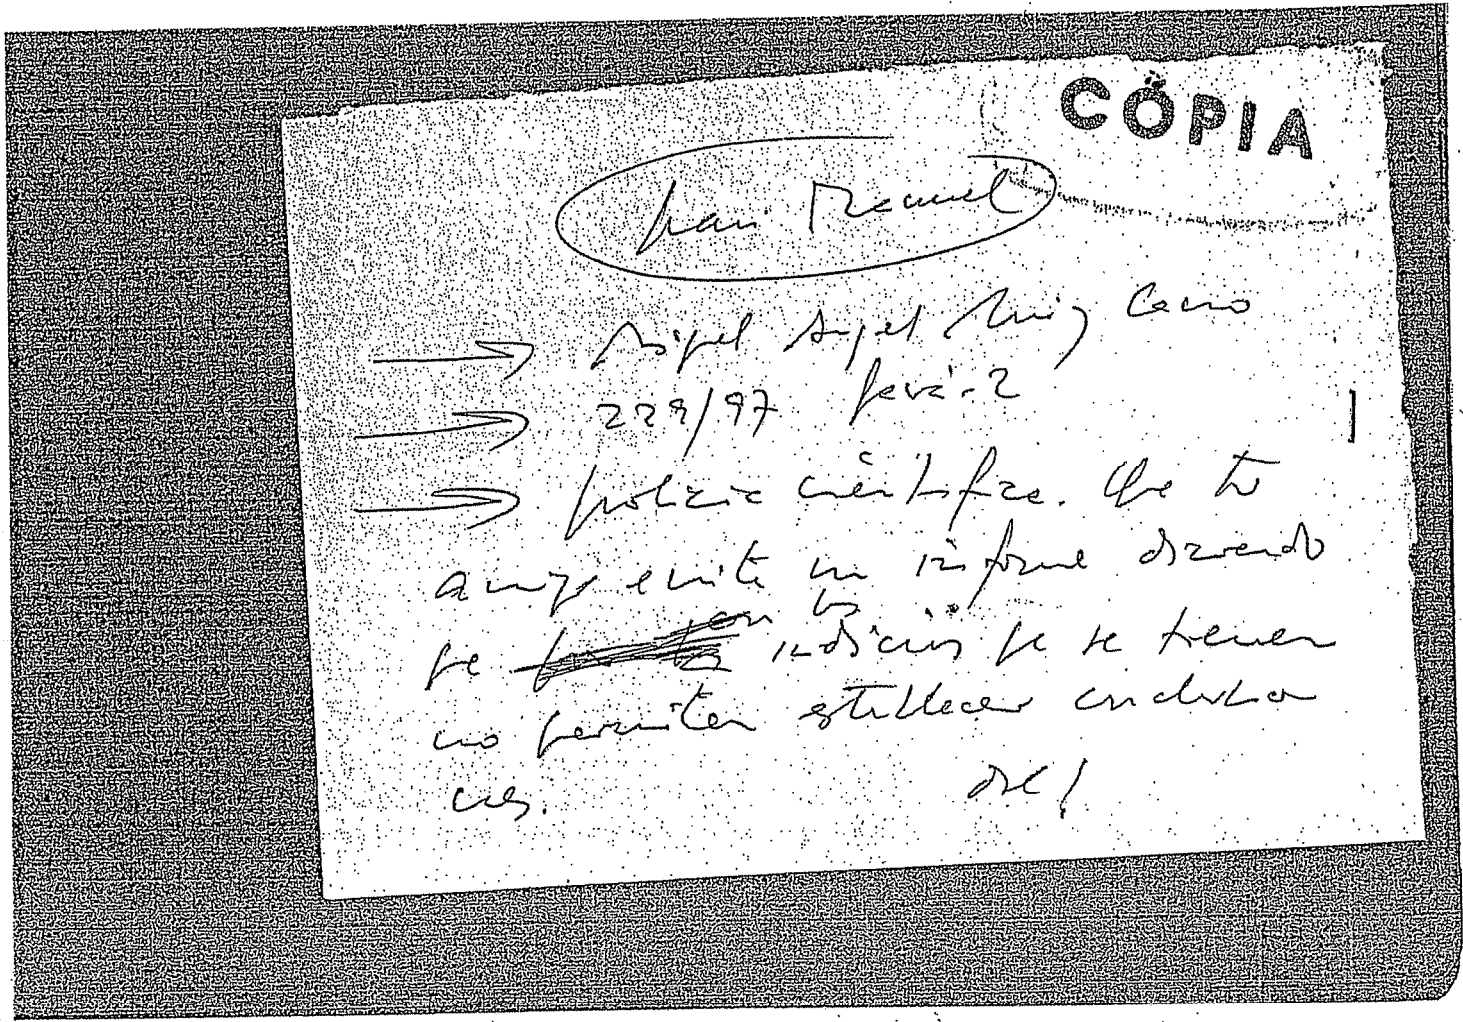 CÓPIA
Juan Manuel
Miguel Angel Ruiz Cano
229/97
policía científica. Que tu
amigo emite un informe diciendo
que con los indicios que se tienen
no permiten establecer conclusio
nes.